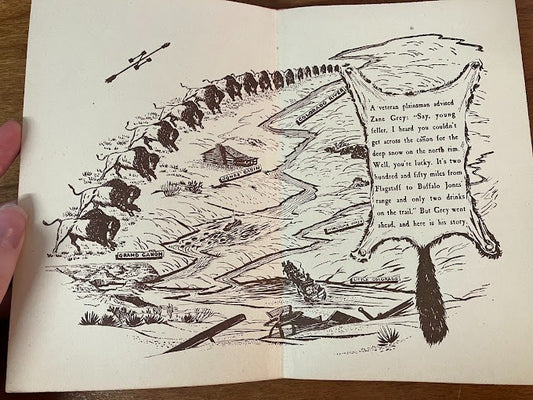 COLORADO RIVER
A veteran plainsman advised
Zane Grey: "Say, young
feller, I heard you couldn't
get across the cañon for the
deep snow on the north rim.
Well, you're lucky. It's two
hundred and fifty miles from
Flagstaff to Buffalo Jones'
range and only two drinks
on the trail." But Grey went
ahead, and here is his story.
GRAND CANON
LITTLE COLORADO